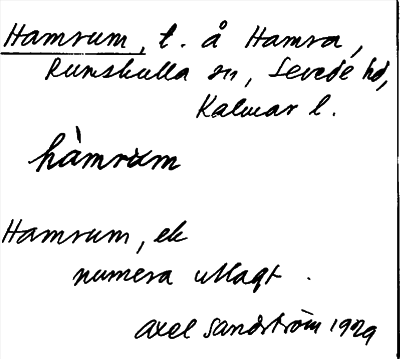 Hamrum, t. å Hamra,
Rumskulla sn, Sevede hd,
Kalmar l.
hàmrum
Hamrum, ek
numera utlagt.
Axel Sandström 1929